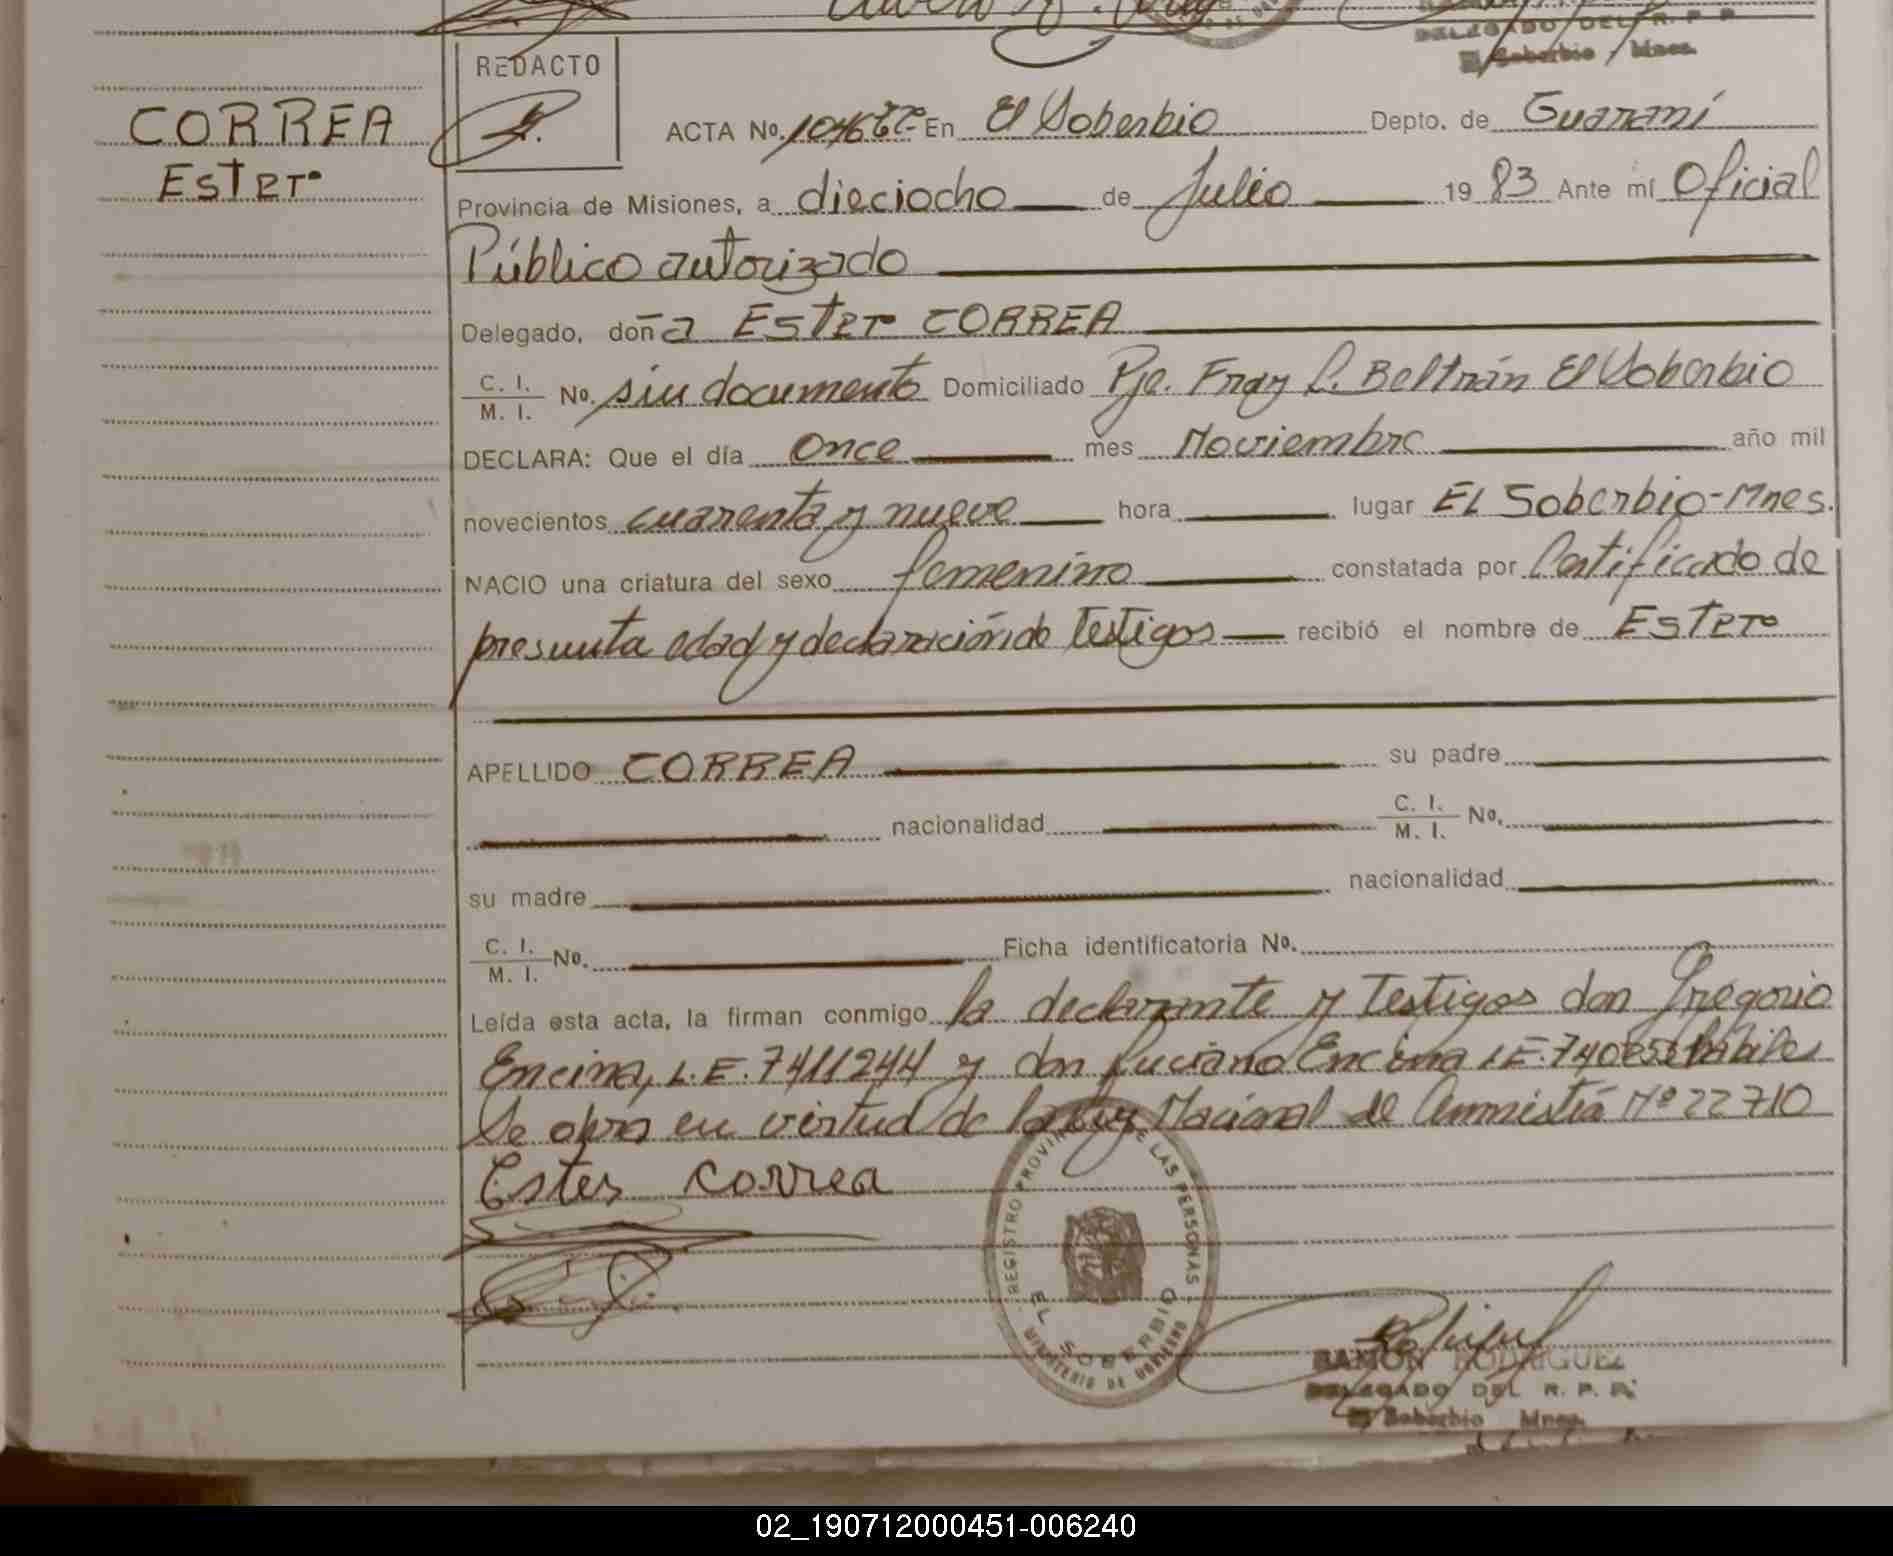 DELEGADO DEL R. P. P.
El Soberbio Mnes.
REDACTO
CORREA
Ester
ACTA No. 1046 En El Soberbio Depto. de Guaraní
Provincia de Misiones, a dieciocho de Julio 19 83 Ante mí Oficial
Público autorizado
Delegado, doña Ester CORREA
C. I. M. I. No. sin documento Domiciliado Pje. Fray L. Beltrán El Soberbio
DECLARA: Que el día once mes Noviembre año mil
novecientos cuarenta y nueve hora lugar EL Soberbio-Mnes.
NACIO una criatura del sexo femenino constatada por Certificado de
presunta edad y declaración de testigos recibió el nombre de Ester
APELLIDO CORREA su padre
nacionalidad C. I. M. I. No.
su madre nacionalidad
C. I. M. I. No. Ficha identificatoria No.
Leída esta acta, la firman conmigo la declarante y testigos don Gregorio
Encina, L.E. 7411244 y don Luciano Encina L.E. hábiles
Se obra en virtud de la Ley Nacional de Amnistía Nº 22710
Ester Correa
REGISTRO PROVINCIAL DE LAS PERSONAS
EL SOBERBIO
MINISTERIO DE GOBIERNO
RAMON RODRIGUEZ
DELEGADO DEL R. P. P.
El Soberbio Mnes.
02_190712000451-006240